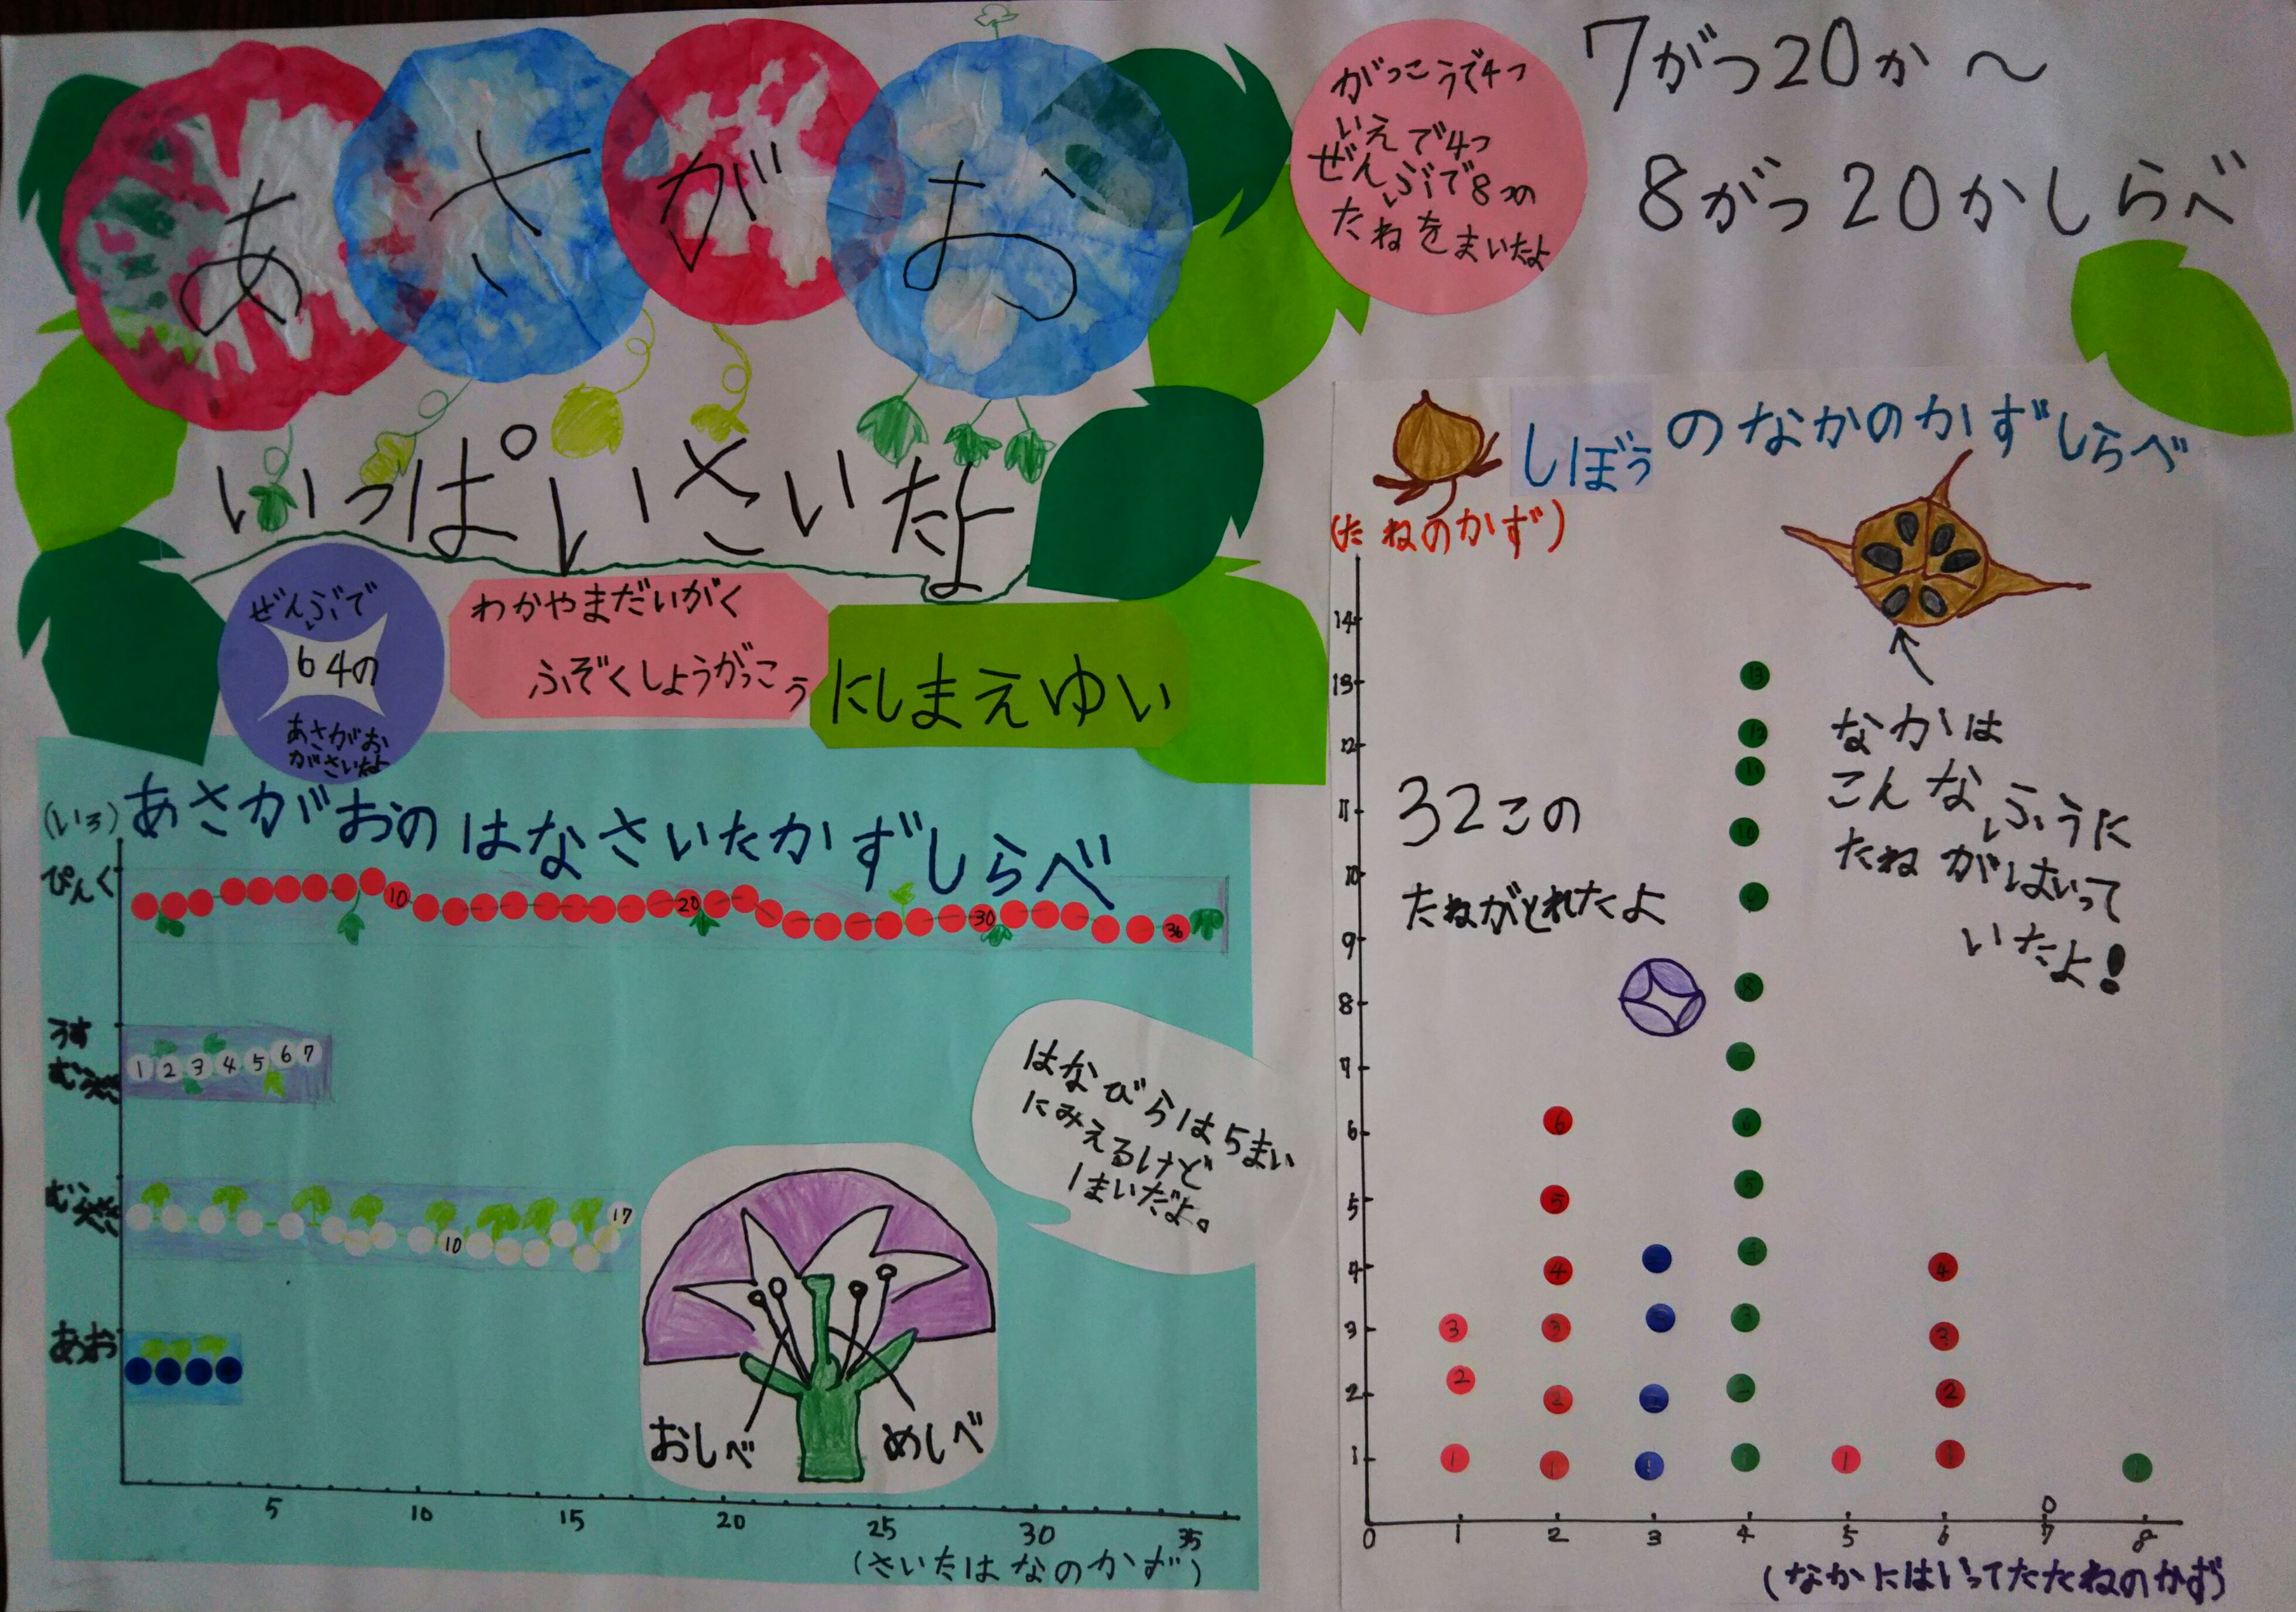 あさがお
いっぱいさいたよ
がっこうで4つ
いえで4つ
ぜんぶで8つの
たねをまいたよ
7がつ20か〜
8がつ20かしらべ
ぜんぶで
64の
あさがお
がさいたよ
わかやまだいがく
ふぞくしょうがっこう
にしまえゆい
(いろ)
あさがおのはなさいたかずしらべ
ぴんく
10
20
30
36
うす
むらさき
1 2 3 4 5 6 7
むらさき
10
17
あお
5 10 15 20 25 30 35
(さいたはなのかず)
はなびらは5まい
にみえるけど
1まいだよ。
おしべ
めしべ
しぼうのなかのかずしらべ
(たねのかず)
14
13
12
11
10
9
8
7
6
5
4
3
2
1
0 1 2 3 4 5 6 7 8
0
(なかにはいってたたねのかず)
32この
たねがとれたよ
なかは
こんなふうに
たねがはいって
いたよ!
3
2
1
6
5
4
3
2
1
4
3
2
1
13
12
11
10
9
8
7
6
5
4
3
2
1
1
4
3
2
1
1